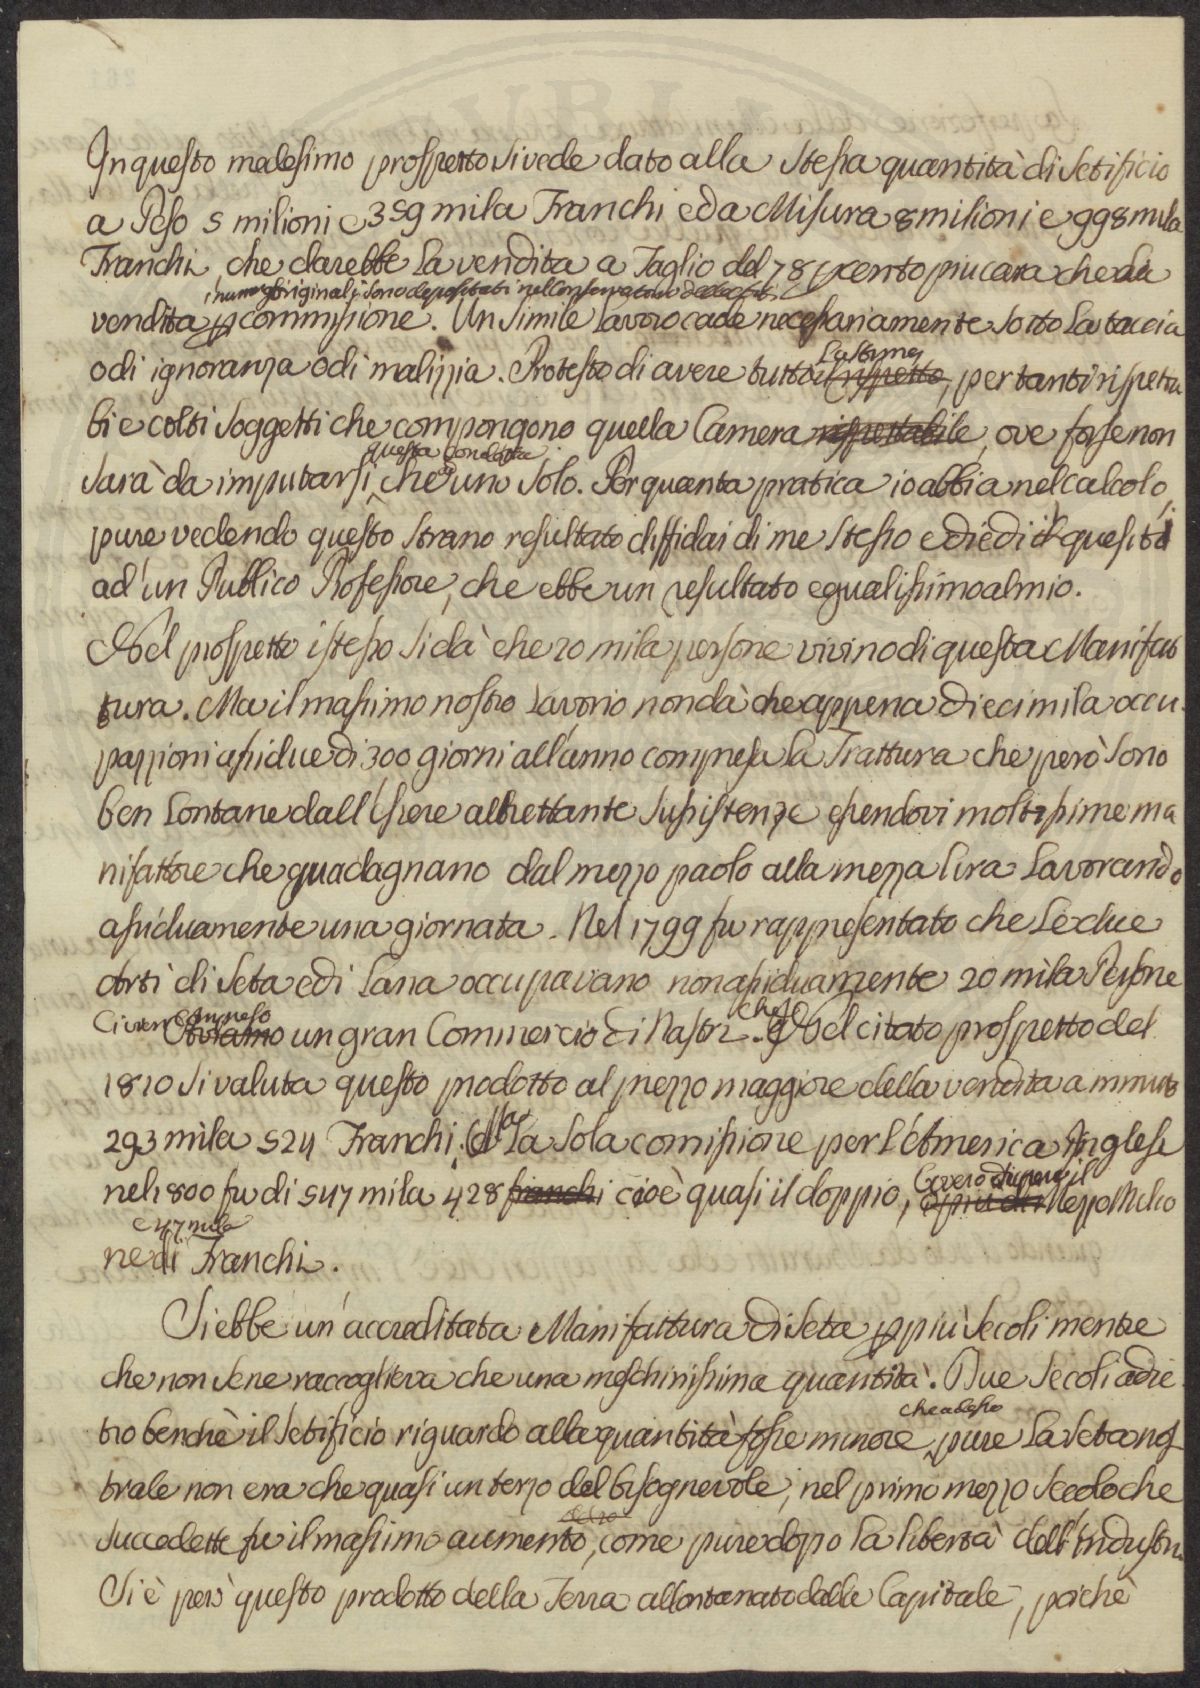 In questo medesimo prospetto si vede dato alla stessa quantità di setificio
a Peso 5 milioni e 359 mila Franchi ed a Misura 8 milioni e 998 mila
Franchi, che darebbe la vendita a Taglio del 78 p cento piu cara che la
i numeri originali sono depositati nel conservatorio
vendita p commissione. Un simile lavoro cade necessariamente sotto la taccia
La stima
o di ignoranza o di malizzia. Protesto di avere tutto il rispetto, per tanti rispetta
bi e colti soggetti che compongono quella Camera rispettabile, ove forse non
questa condotta
sarà da imputarsi che a uno solo. Per quanta pratica io abbia nel calcolo,
pure vedendo questo strano resultato diffidai di me stesso e diedi il quesito
ad' un Publico Professore, che ebbe un resultato egualissimo al mio.
Nel prospetto istesso si dà che 20 mila persone vivino di questa Manifat
tura. Ma il massimo nostro lavorio non dà che appena diecimila occu
pazzioni assidue di 300 giorni all'anno compresa la Trattura che però sono
ben lontane dall'essere altrettante sussistenze essendovi moltissime ma
nifattore che guadagnano dal mezzo paolo alla mezza lira lavorando
assiduamente una giornata. Nel 1799 fu rappresentato che le due
Arti di seta e di lana occupavano non assiduamente 20 mila Persone
compreso
che se
un gran Commercio di Nastri. Nel citato prospetto del
1810 si valuta questo prodotto al prezzo maggiore della vendita a minuto
293 mila 524 Franchi. la sola comissione per l'America Inglese
nel 1800 fu di 547 mila 428 franchi cioè quasi il doppio, o più di Mezzo Milio
ovvero di più il
e 47 mila
ne di Franchi.
Si ebbe un' accreditata Manifattura di seta p più secoli mentre
che non se ne raccoglieva che una meschinissima quantità. Due secoli adie
che adesso
tro benchè il setificio riguardo alla quantità fosse minore, pure la seta nos
trale non era che quasi un terzo del bisognevole, nel primo mezzo secolo che
succedette fu il massimo aumento, come pure dopo la libertà dell'industri
Si è però questo prodotto della Terra allontanato dalla Capitale, poichè